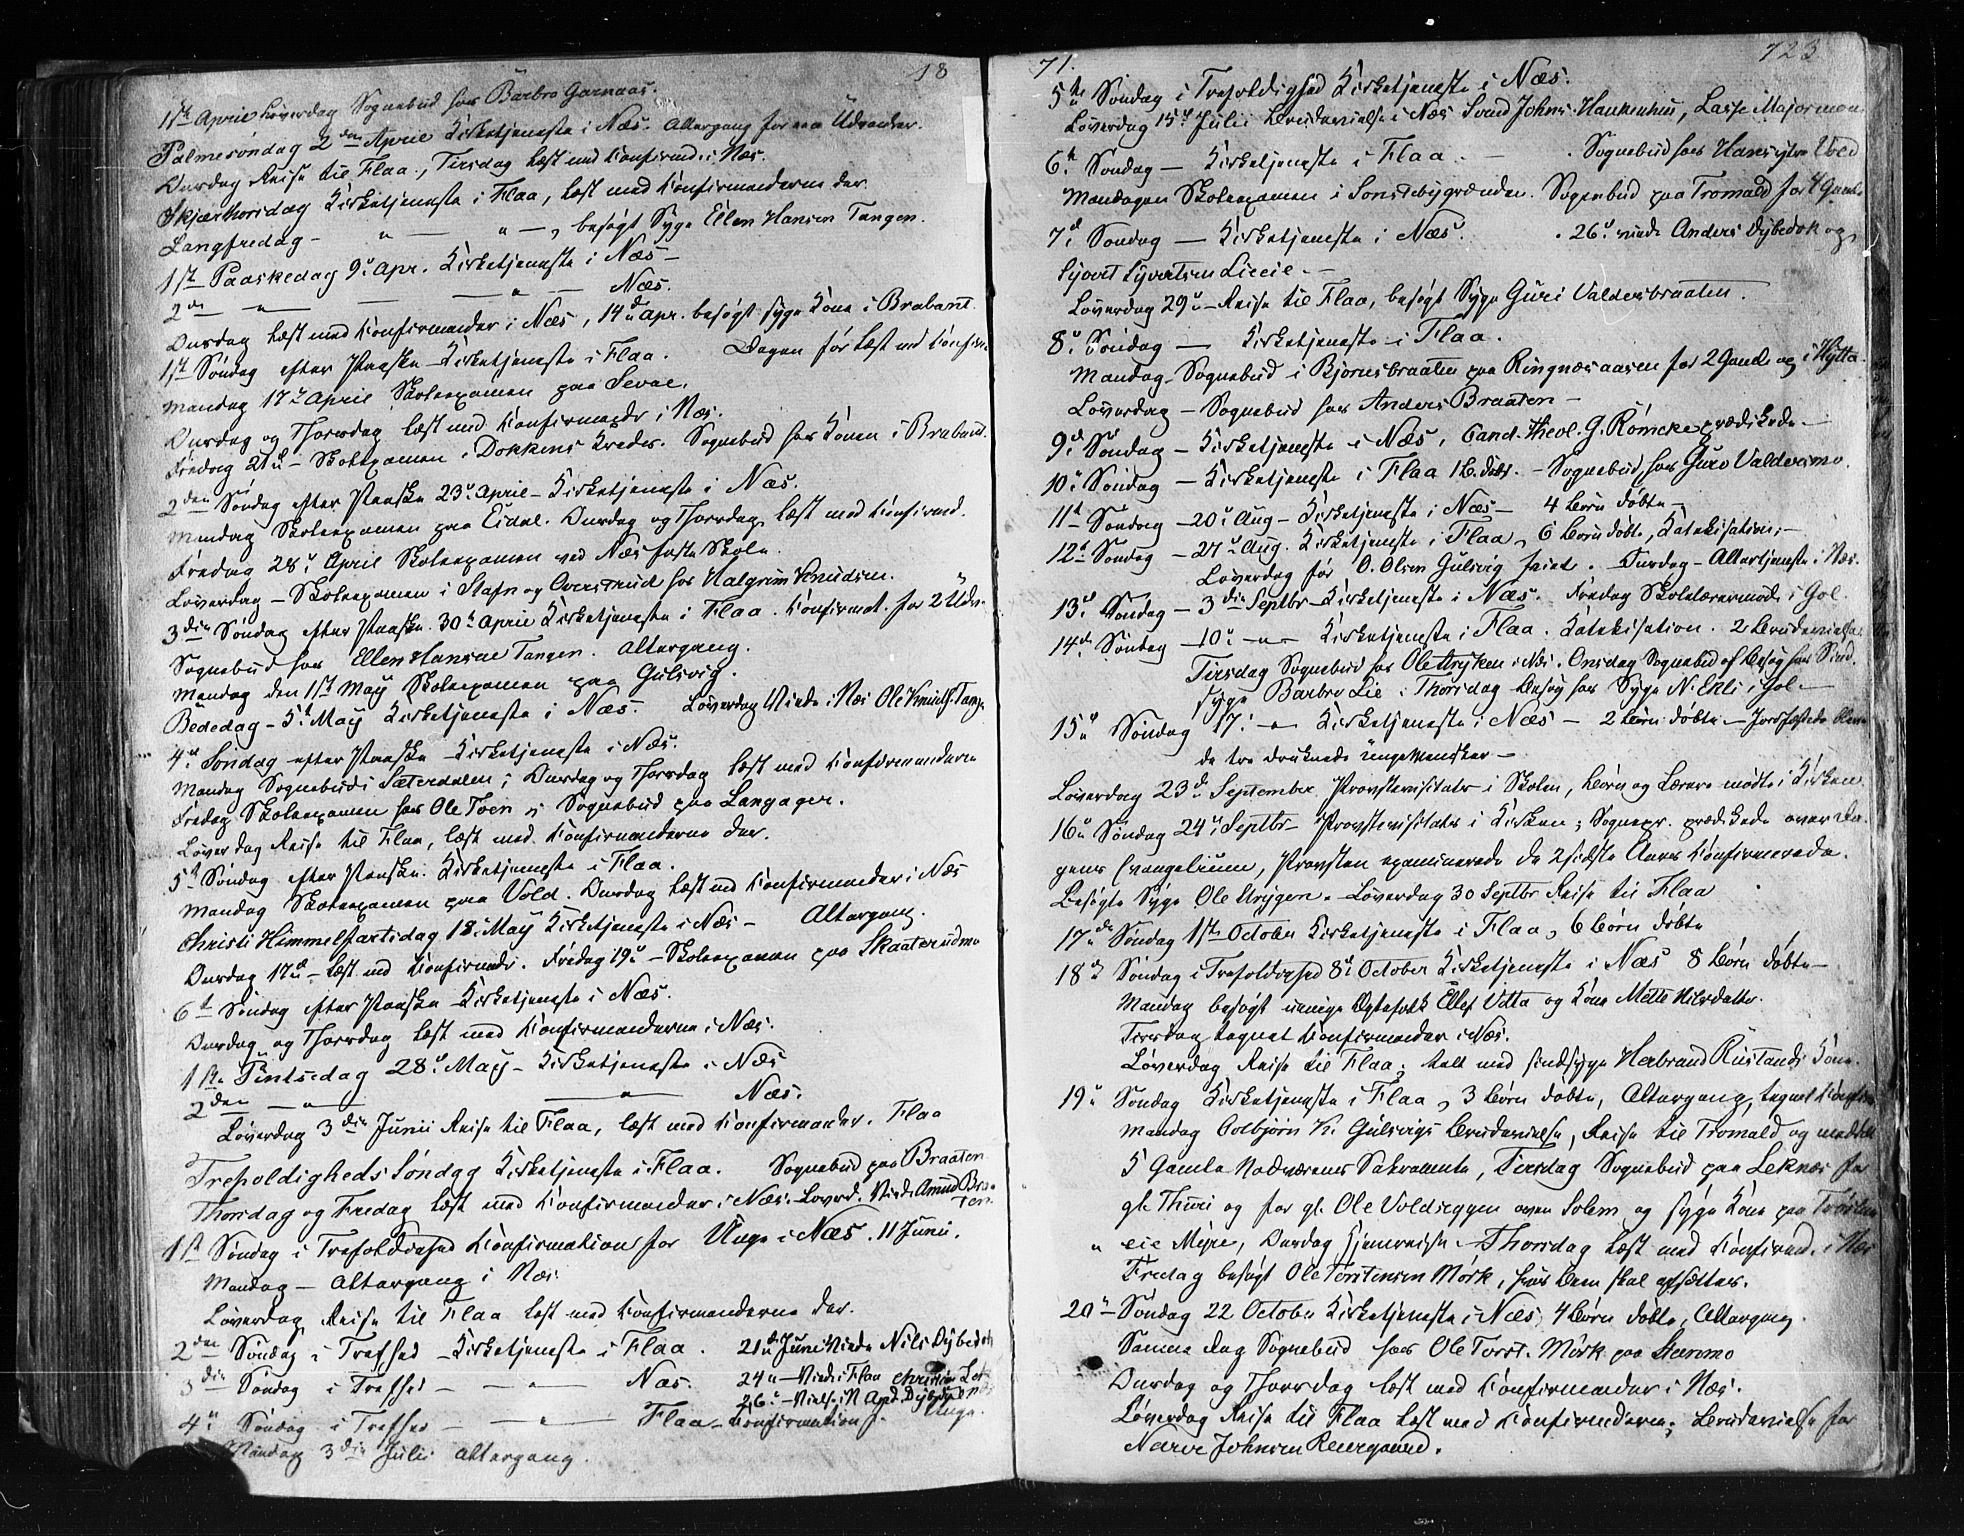 18
1ste April Löverdag Sognebud hos Barbro Garnaas.
Palmesöndag 2den April Kirketjeneste i Næs. Altergang for nogle Udvandrer.
Onsdag Reise til Flaa, Tirsdag læst med Konfirmd. i Næs.
Skjærthorsdag Kirketjeneste i Flaa, læst med Konfirmanderne der.
Langfredag - " — " —, besögt Syge Ellen Hansen Tangen.
1ste Paaskedag 9de Apr. Kirketjeneste i Næs —
2den — " — — " — Næs.
Onsdag læst med Konfirmander i Næs, 14de Apr. besögt syge Kone i Brabant.
1ste Söndag efter Paaske Kirketjeneste i Flaa. Dagen för læst med Konfirm.
Mandag 17de April Skoleexamen paa Sevre.
Onsdag og Thorsdag læst med Konfirmandr i Næs.
Fredag 21de - Skoleexamen i Dokkens Kreds. Sognebud hos Konen i Brabant.
2den Söndag efter Paaske 23de April - Kirketjeneste i Næs.
Mandag Skoleexamen paa Eidal. Onsdag og Thorsdag læst med Konfirmd.
Fredag 28de April Skoleexamen ved Næs faste Skole.
Löverdag - Skoleexamen i Stafn og Overstrud hos Halgrim Knudsen.
3die Söndag efter Paaske 30te April Kirketjeneste i Flaa. Konfirmat. for 2 Udv.
Sognebud hos Ellen Hansne Tangen. Altergang.
Mandag den 1ste May Skoleexamen paa Gulsvig.
Bededag - 5te May Kirketjeneste i Næs. Löverdag Viede i Næs Ole Knuds. Tange
4de Söndag efter Paaske Kirketjeneste i Næs.
Mandag Sognebud i Sæterdalen; Onsdag og Thorsdag læst med Konfirmanderne
Fredag Skoleexamen hos Ole Toen, Sognebud paa Langager.
Löverdag Reise til Flaa, læst med Konfirmanderne der.
5te Söndag efter Paaske. Kirketjeneste i Flaa.
Mandag Skoleexamen paa Vold. Onsdag læst med Konfirmander i Næs
Christi Himmelfartsdag 18 May Kirketjeneste i Næs - Altergang.
Onsdag 17de - læst med Konfirmdr. Fredag 19de - Skoleexamen paa Skaaterudmo
6te Söndag efter Paaske Kirketjeneste i Næs.
Onsdag og Thorsdag læst med Konfirmanderne i Næs.
1ste Pintsedag 28de May - Kirketjeneste i Næs
2den — " — — " — Næs.
Löverdag 3die Junii Reise til Flaa, læst med Konfirmander. Flaa
Trefoldigheds Söndag Kirketjeneste i Flaa. Sognebud paa Braaten
Thorsdag og Fredag læst med Konfirmander i Næs. Löverd. Viede Amund Braaten.
1ste Söndag i Trefoldighed Konfirmation for Unge i Næs. 11 Junii.
Mandag - Altergang i Næs
Löverdag Reise til Flaa læst med Konfirmanderne der.
2den Söndag i Trefhed - Kirketjeneste i Flaa. 21de June Viede Nils Dybedok
3die Söndag i Trefhed - — " — Næs. 24de - Viede i Flaa
26de - Vielse i N
4de Söndag i Trefhed - — " — Flaa - Konfirmation f. Unge.
Mandag 3die Julii Altergang.
71. 723
5te Söndag i Trefoldighed Kirketjeneste i Næs.
Löverdag 15de Julii Brudevielse i Næs Svend Johns. Haukenhus, Lasse Majormoen
6te Söndag — Kirketjeneste i Flaa. — . Sognebud hos Hans ytre Vold
Mandagen Skoleexamen i Sonstebygrænden. Sognebud paa Tromald for 4 Gamle
7de Söndag — Kirketjeneste i Næs. . 26de viede Anders Dybedok og
Syvert Syvertsen Liceie. -
Löverdag 29de - Reise til Flaa, besögt Syge Guri Valdersbraaten.
8de Söndag — Kirketjeneste i Flaa.
Mandag - Sognebud i Björnsbraaten paa Ringnæsaasen for 2 Gamle og i Hytta.
Löverdag - Sognebud hos Anders Braaten -
9de Söndag - Kirketjeneste i Næs, Cand. theol. G. Römcke prædikede. —
10de Söndag — Kirketjeneste i Flaa 1 B. döbt. - Sognebud hos Guro Valdersmo.
11te Söndag - 20de Aug - Kirketjeneste i Næs — 4 Börn döbte -
12te Söndag - 27de Aug. Kirketjeneste i Flaa, 6 Börn döbte, Katekisation; -
Löverdag för O. Olsen Gulsvig . Onsdag - Altertjeneste i Næs.
13de Söndag - 3die Septbr Kirketjeneste i Næs. Fredag Skolelærermöde i Gol.
14de Söndag - 10de - " - Kirketjeneste i Flaa. Katekisation. 2 Brudevielser
Tirsdag Sognebud hos Ole Mryken i Næs. Onsdag Sognebud og Besög hos Sind
syge Barbro Lie; Thorsdag Besög hos Syge N. Ekli i Gol. —
15de Söndag 17. - " - Kirketjeneste i Næs - 2 Börn döbte - Jordfæstede
de tre druknede unge Mænsker —
Löverdag 23de September Provstevisitats i Skolen, Börn og Lærere mödte i Kirken
16de Söndag 24de Septbr Provstevisitats i Kirken; Sognepr. prædikede over Da-
gens Evangelium, Provsten examinerede de 2 sidste Aars Konfirmerede.
Besögte Syge Ole Mrygen. - Löverdag 30 Septbr Reise til Flaa
17de Söndag 1ste October Kirketjeneste i Flaa, 6 Börn döbte
18de Söndag i Trefoldighed 8de October Kirketjeneste i Næs 8 Börn döbte —
Mandag besögt uenige Ægtefolk Ellef Vetta og Kone Mette Nilsdatter.
Tirsdag tegnet Konfirmander i Næs.
Löverdag Reise til Flaa; talt med sindssyge Herbrand Rustands Kone.
19de Söndag Kirketjeneste i Flaa, 3 Börn döbte, Altergang, tegnet Konfirm
Mandag Colbjörn K. Gulsvigs Brudevielse, Reise til Tromald og meddelt
5 Gamle Nadverens Sakramente, Tirsdag Sognebud paa Leknæs for
gl. Thuri og for gl. Ole Voldseggen oven Solem og syge Kone paa
eie Myre, Onsdag hjemreiste - Thorsdag læst med Konfirmd. i Næs
Fredag besögt Ole Torstensen Mörk, hvis Been skal afsættes.
20de Söndag 22 October Kirketjeneste i Næs; 4 Börn döbte, Altergang.
Samme Dag Sognebud hos Ole Torst. Mörk paa Stenmo
Onsdag og Thorsdag læst med Konfirmander i Næs.
Löverdag Reise til Flaa læst med Konfirmderne; Brudevielse for
Narve Johnsen Roergaard.